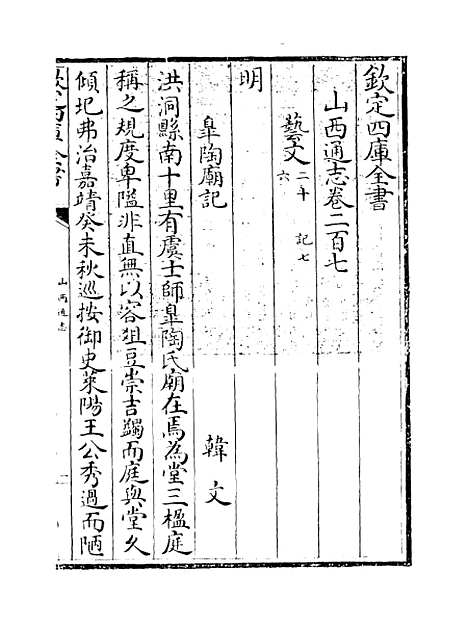 欽定四庫全書
山西通志卷二百七
藝文二十六 記七
明
臯陶廟記 韓文
洪洞縣南十里有虞士師臯陶氏廟在焉為堂三楹庭
稱之規度卑隘非直無以容俎豆崇吉蠲而庭與堂久
傾圮弗治嘉靖癸未秋巡按御史萊陽王公秀過而陋
山西通志
一